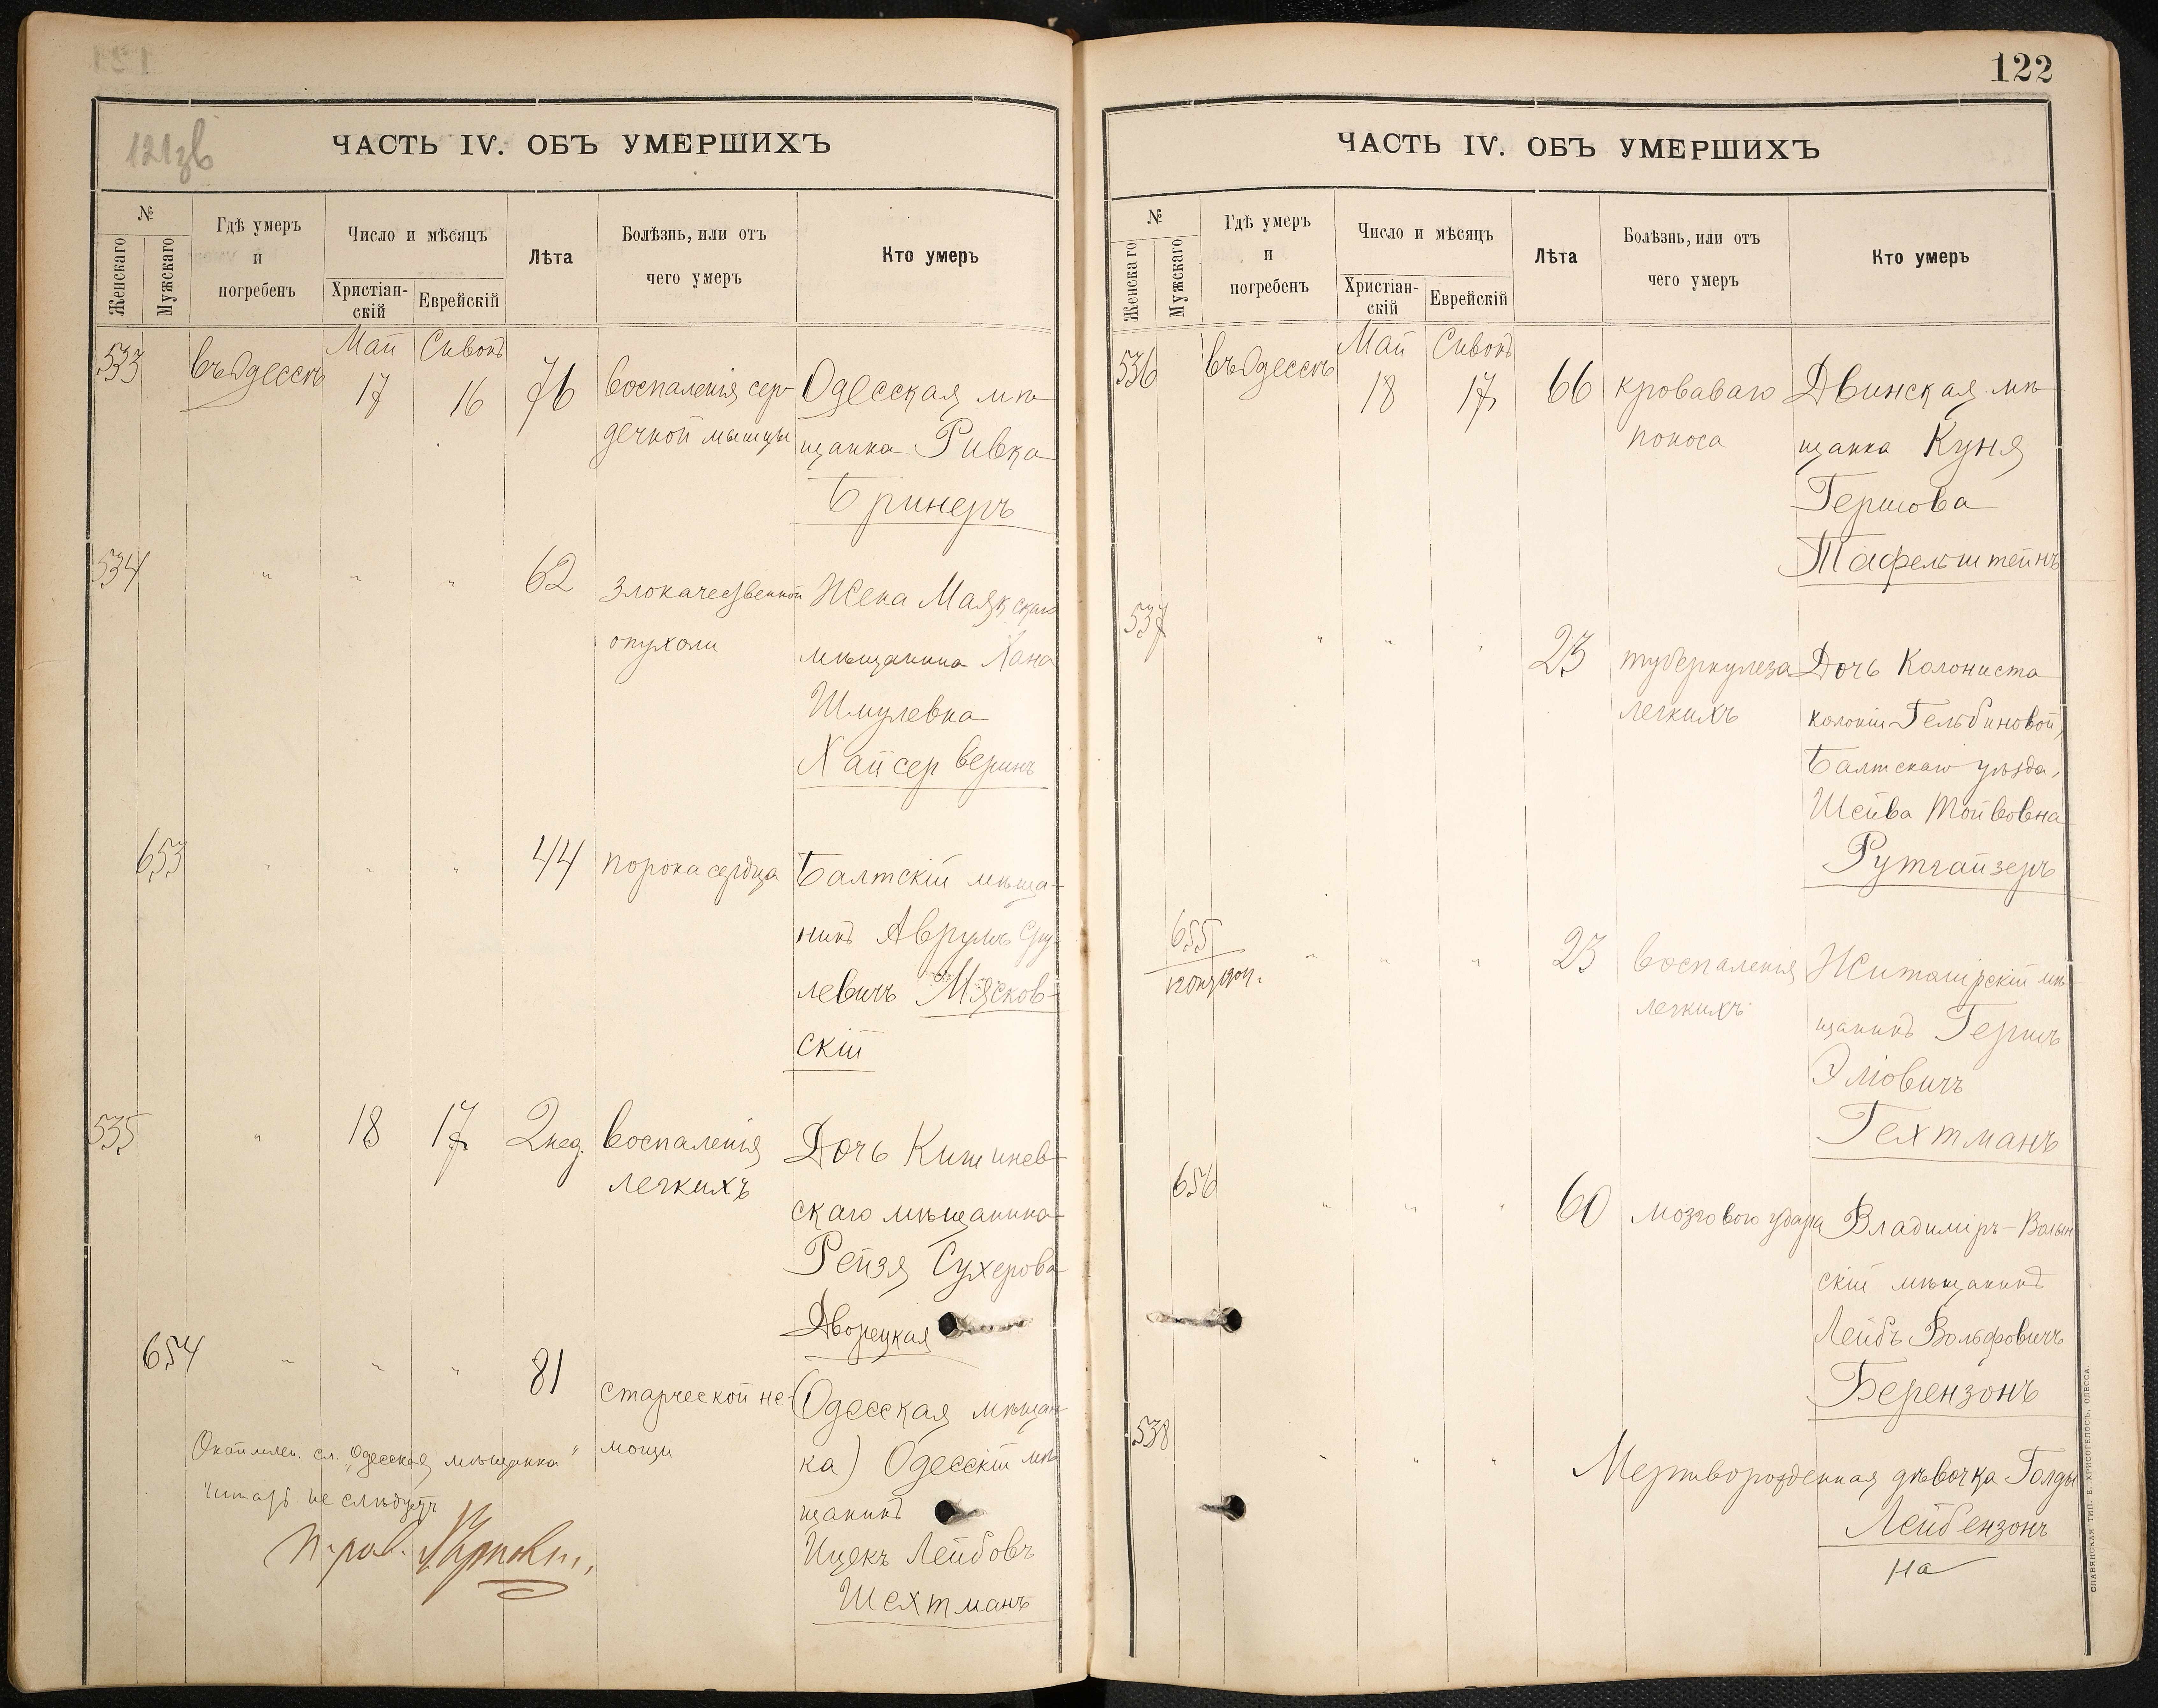 121зв
ЧАСТЬ IV. ОБЪ УМЕРШИХЪ
№
Женскаго
Мужскаго
Гдѣ умеръ
и
погребенъ
Число и мѣсяцъ
Христіан-
скій
Еврейскій
Лѣта
Болѣзнь, или отъ
чего умеръ
Кто умеръ
Май Сивонъ
533 въ Одессѣ 17 16 76 воспаленія сер- Одесская мѣ-
дечной мышцы щанка Ривка
Бринеръ
534 " " " 62 злокачественной Жена Маякскаго
опухоли мѣщанина Хана
Шмулевна
Хайсерверинъ
653 " " " 44 порока сердца Балтскій мѣща-
нинъ Аврумъ Сру-
левичъ Мясков-
скій
535 " 18 17 2 нед. воспаленія Дочь Кишинев-
легкихъ скаго мѣщанина
Рейзя Сухерова
Дворецкая
654 " " " 81 старческой не- (Одесская мѣщан-
мощи ка) Одесскій мѣ-
щанинъ
Ицекъ Лейбовъ
Шехтманъ
сл. "Одесская мѣщанка"
читать не слѣдуетъ
122
ЧАСТЬ IV. ОБЪ УМЕРШИХЪ
№
Женскаго
Мужскаго
Гдѣ умеръ
и
погребенъ
Число и мѣсяцъ
Христіан-
скій
Еврейскій
Лѣта
Болѣзнь, или отъ
чего умеръ
Кто умеръ
Май Сивонъ
536 въ Одессѣ 18 17 66 кроваваго Двинская мѣ-
поноса щанка Куня
Гершова
Тафельштейнъ
537 " " " 23 туберкулеза Дочь Колониста
легкихъ колоніи Гельбиновой,
Балтскаго уѣзда,
Шейва Мойвовна
Рутгайзеръ
655 " " " 23 воспаленія Житомірскій мѣ-
легкихъ щанинъ Гершъ
Эліовичъ
Гехтманъ
656 " " " 60 мозгового удара Владиміръ-Волын-
скій мѣщанинъ
Лейбъ Вольфовичъ
Берензонъ
538 " " " Мертворожденная дѣвочка Голды
Лейбензонъ
на
СЛАВЯНСКАЯ ТИП. Е. ХРИСОГЕЛОСЪ, ОДЕССА.